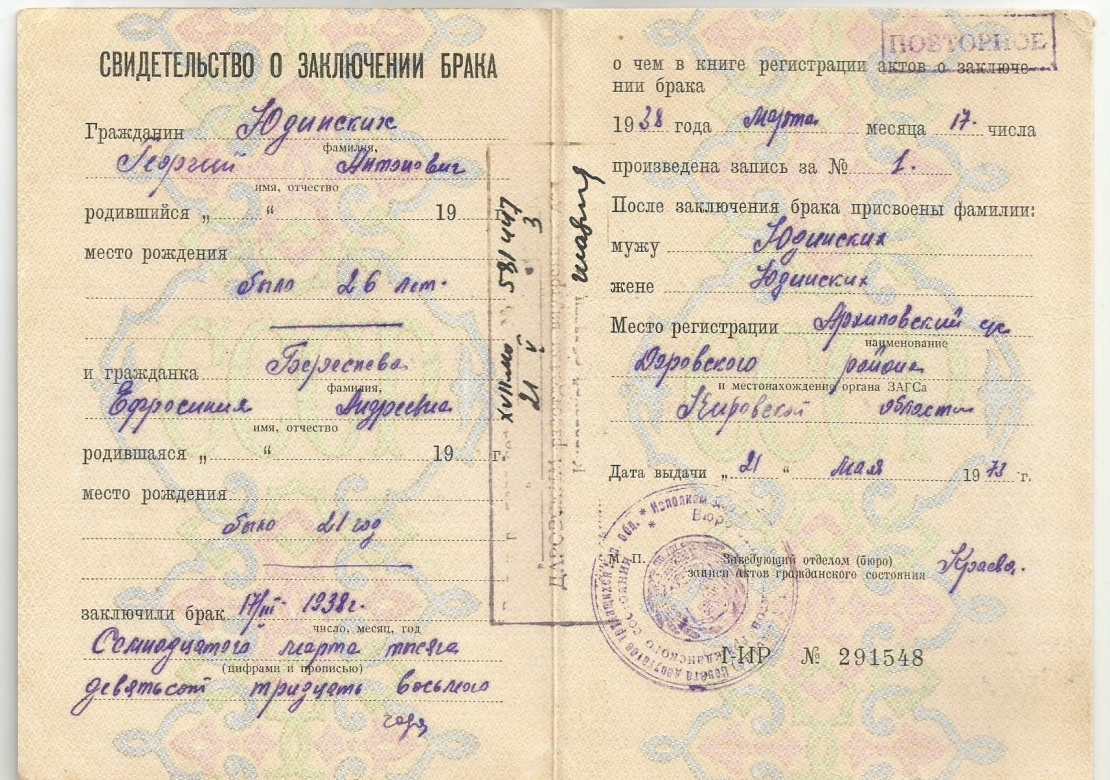 СВИДЕТЕЛЬСТВО О ЗАКЛЮЧЕНИИ БРАКА
Гражданин Юдинских
фамилия,
Георгий Антонович
имя, отчество
родившийся „ “ 19 г.
место рождения
было 26 лет.
и гражданка
фамилия,
Ефросиния Андреевна
имя, отчество
родившаяся „ “ 19 г.
место рождения
было 21 год
заключили брак 17/III- 1938г.
число, месяц, год
Семнадцатого марта тысяча
(цифрами и прописью)
девятьсот тридцать восьмого
года
XVII-ИР 581447
21 V 3
ПОВТОРНОЕ
о чем в книге регистрации актов о заключе-
нии брака
1938 года марта месяца 17. числа
произведена запись за № 1.
После заключения брака присвоены фамилии:
мужу Юдинских
жене Юдинских
Место регистрации Архиповский с/с
наименование
Даровского района
и местонахождение органа ЗАГСа
Кировской области
Дата выдачи „ 21 “ мая 1973 г.
М. П. Заведующий отделом (бюро)
записи актов гражданского состояния
I-ИР № 291548